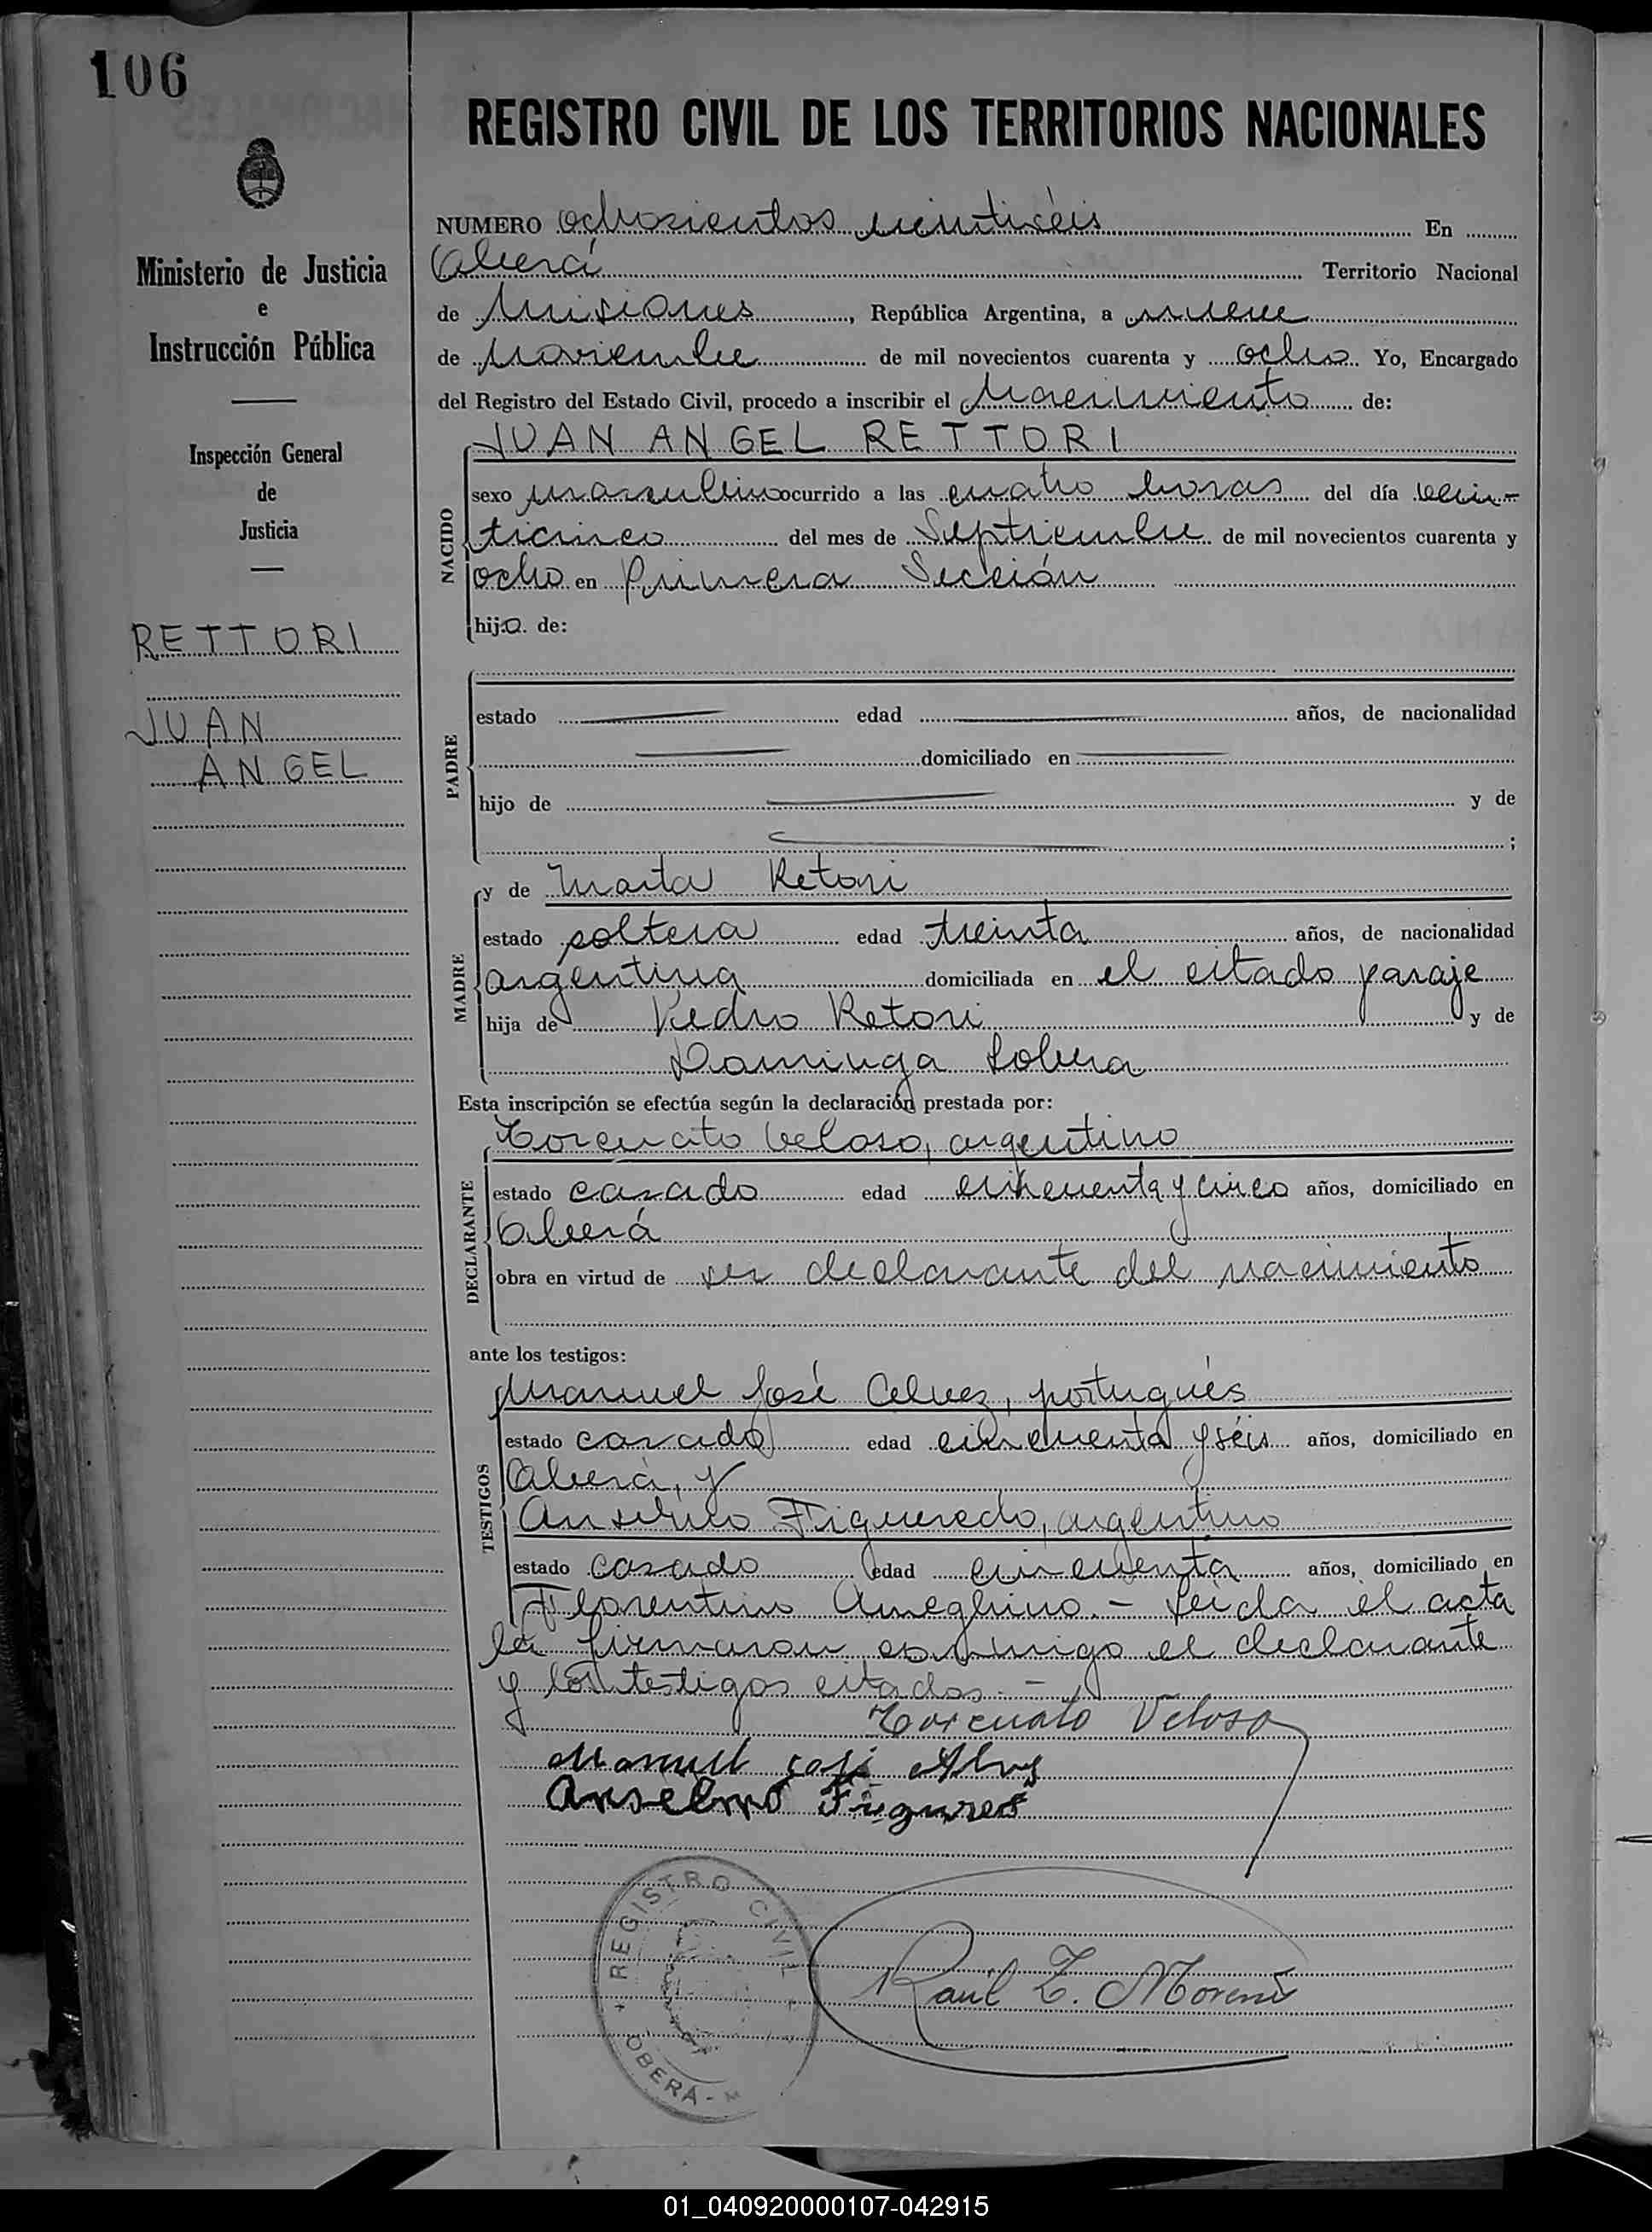 106
REGISTRO CIVIL DE LOS TERRITORIOS NACIONALES
Ministerio de Justicia
e
Instrucción Pública
Inspección General
de
Justicia
RETTORI
JUAN
ANGEL
NUMERO ochosientos veintiséis En
Oberá Territorio Nacional
de Misiones, República Argentina, a nueve
de Noviembre de mil novecientos cuarenta y ocho Yo, Encargado
del Registro del Estado Civil, procedo a inscribir el Nacimiento de:
JUAN ANGEL RETTORI
NACIDO
sexo masculino ocurrido a las cuatro horas del día vein-
ticinco del mes de Septiembre de mil novecientos cuarenta y
ocho en Primera Sección
hijo de:
PADRE
estado edad años, de nacionalidad
domiciliado en
hijo de y de
;
MADRE
y de Marta Retori
estado soltera edad treinta años, de nacionalidad
argentina domiciliada en el citado paraje
hija de Pedro Retori y de
Dominga
Esta inscripción se efectúa según la declaración prestada por:
DECLARANTE
Torcuato Veloso, argentino
estado casado edad cincuenta y cinco años, domiciliado en
Oberá
obra en virtud de ser declarante del nacimiento
ante los testigos:
TESTIGOS
Manuel José Alvez, portugués
estado casado edad cincuenta y séis años, domiciliado en
Oberá, y
Anselmo Figueredo, argentino
estado casado edad cincuenta años, domiciliado en
Florentino Ameghino.- Leída el acta
la firmaron conmigo el declarante
y los testigos citados.-
Torcuato Veloso
Manuel José Alves
Anselmo
REGISTRO CIVIL
OBERÁ - M
Raúl Z. Moreno
01_040920000107-042915